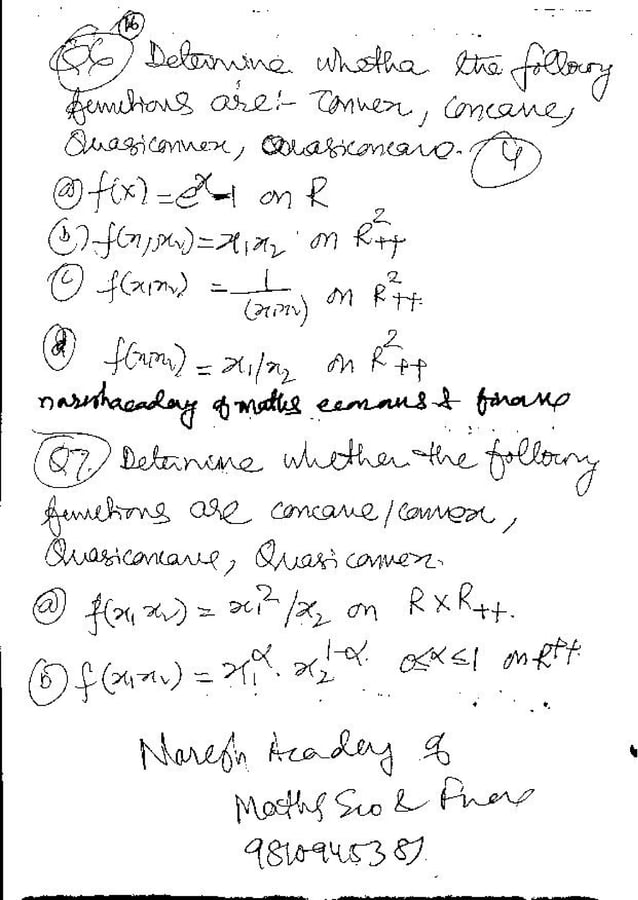 16
Q6 Determine whether the following
functions are:- Convex, Concave,
Quasiconvex, Quasiconcave. 4
a) f(x) = e^x-1 on R
b) f(x1,x2) = x1x2 on R^2_++
c) f(x1x2) = 1/(x1x2) on R^2_++
d f(x1x2) = x1/x2 on R^2_++
nareshacademy of maths economics & finance
Q7. Determine whether the following
functions are concave/convex,
Quasiconcave, Quasiconvex.
a f(x1,x2) = x1^2/x2 on R x R++.
b f(x1x2) = x1^α. x2^1-α. 0≤α≤1 on R^++
Naresh Academy of
Maths Eco & Finance
9810945381